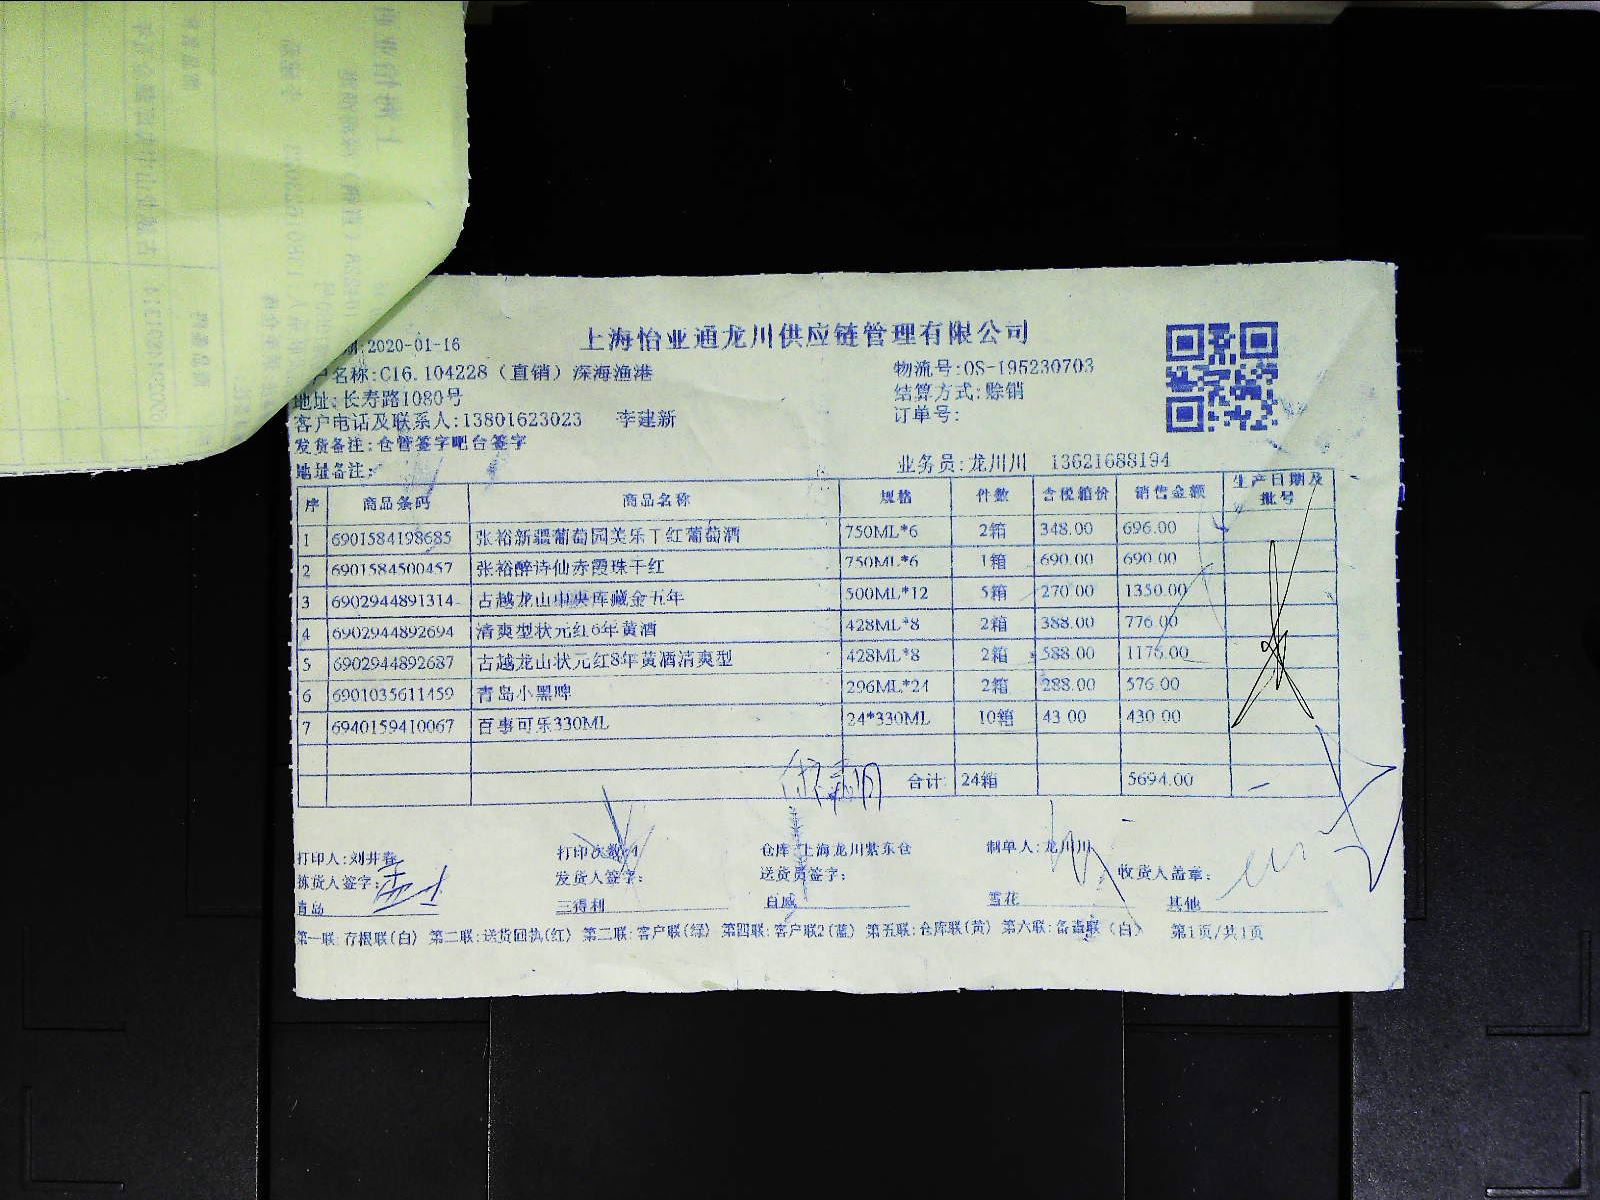 上海怡亚通龙川供应链管理有限公司
:2020-01-16
户名称:C16.104228（直销）深海渔港
物流号:OS-195230703
地址:长寿路1080号
结算方式:赊销
客户电话及联系人:13801623023 李建新
订单号:
发货备注:仓管签字吧台签字
地址备注:
业务员:龙川川 13621688194
序 商品条码 商品名称 规格 件数 含税箱价 销售金额 生产日期及批号
1 6901584198685 张裕新疆葡萄园美乐干红葡萄酒 750ML*6 2箱 348.00 696.00
2 6901584500457 张裕醉诗仙赤霞珠干红 750ML*6 1箱 690.00 690.00
3 6902944891314 古越龙山中央库藏金五年 500ML*12 5箱 270.00 1350.00
4 6902944892694 清爽型状元红6年黄酒 428ML*8 2箱 388.00 776.00
5 6902944892687 古越龙山状元红8年黄酒清爽型 428ML*8 2箱 588.00 1176.00
6 6901035611459 青岛小黑啤 296ML*24 2箱 288.00 576.00
7 6940159410067 百事可乐330ML 24*330ML 10箱 43.00 430.00
合计: 24箱 5694.00
打印人:刘井春 打印次数:1 仓库:上海龙川紫东仓 制单人:龙川川
拣货人签字: 发货人签字: 送货员签字: 收货人盖章:
青岛 三得利 百威 雪花 其他
第一联:存根联(白) 第二联:送货回执(红) 第三联:客户联(绿) 第四联:客户联2(蓝) 第五联:仓库联(黄) 第六联:备查联（白） 第1页/共1页